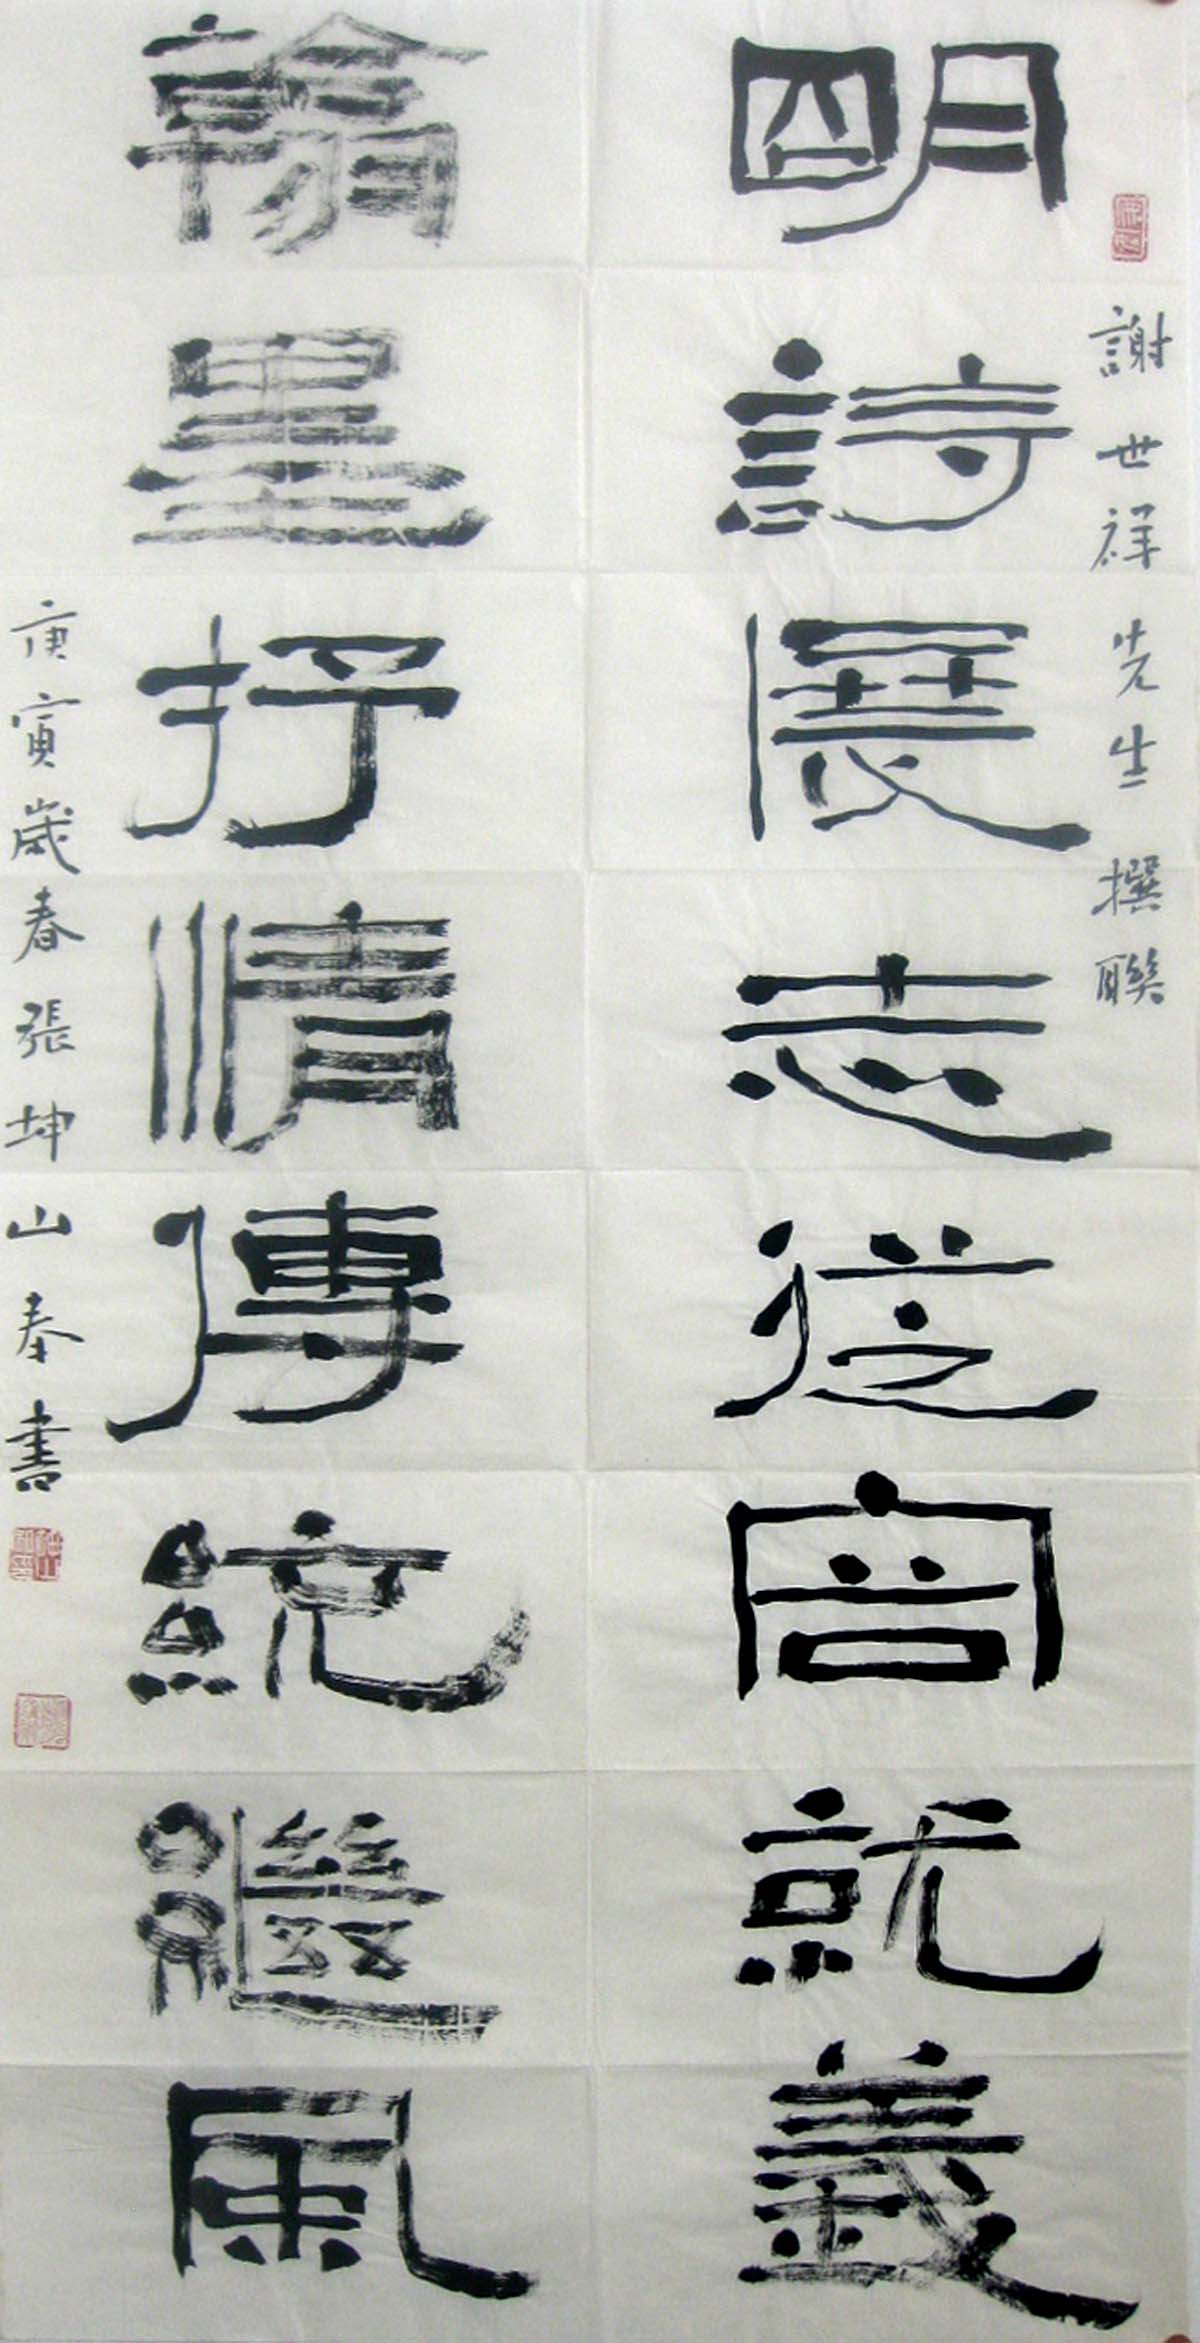 謝世祥先生撰聯
明詩展志從容就義
翰墨抒情傳統繼風
庚寅歲春張坤山奉書